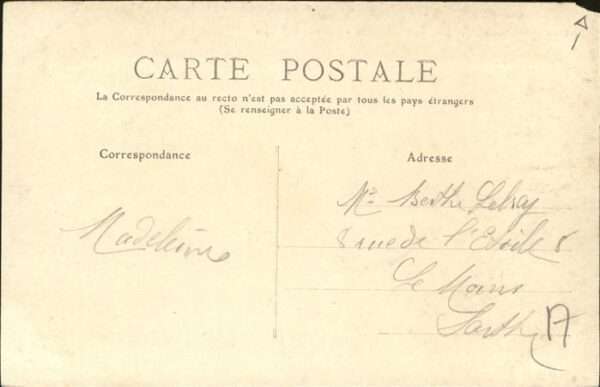 CARTE POSTALE
La Correspondance au recto n'est pas acceptée par tous les pays étrangers
(Se renseigner à la Poste)
Correspondance
Adresse
Madeleine
Berthe
rue de l'Etoile 8
Le Mans
Sarthe